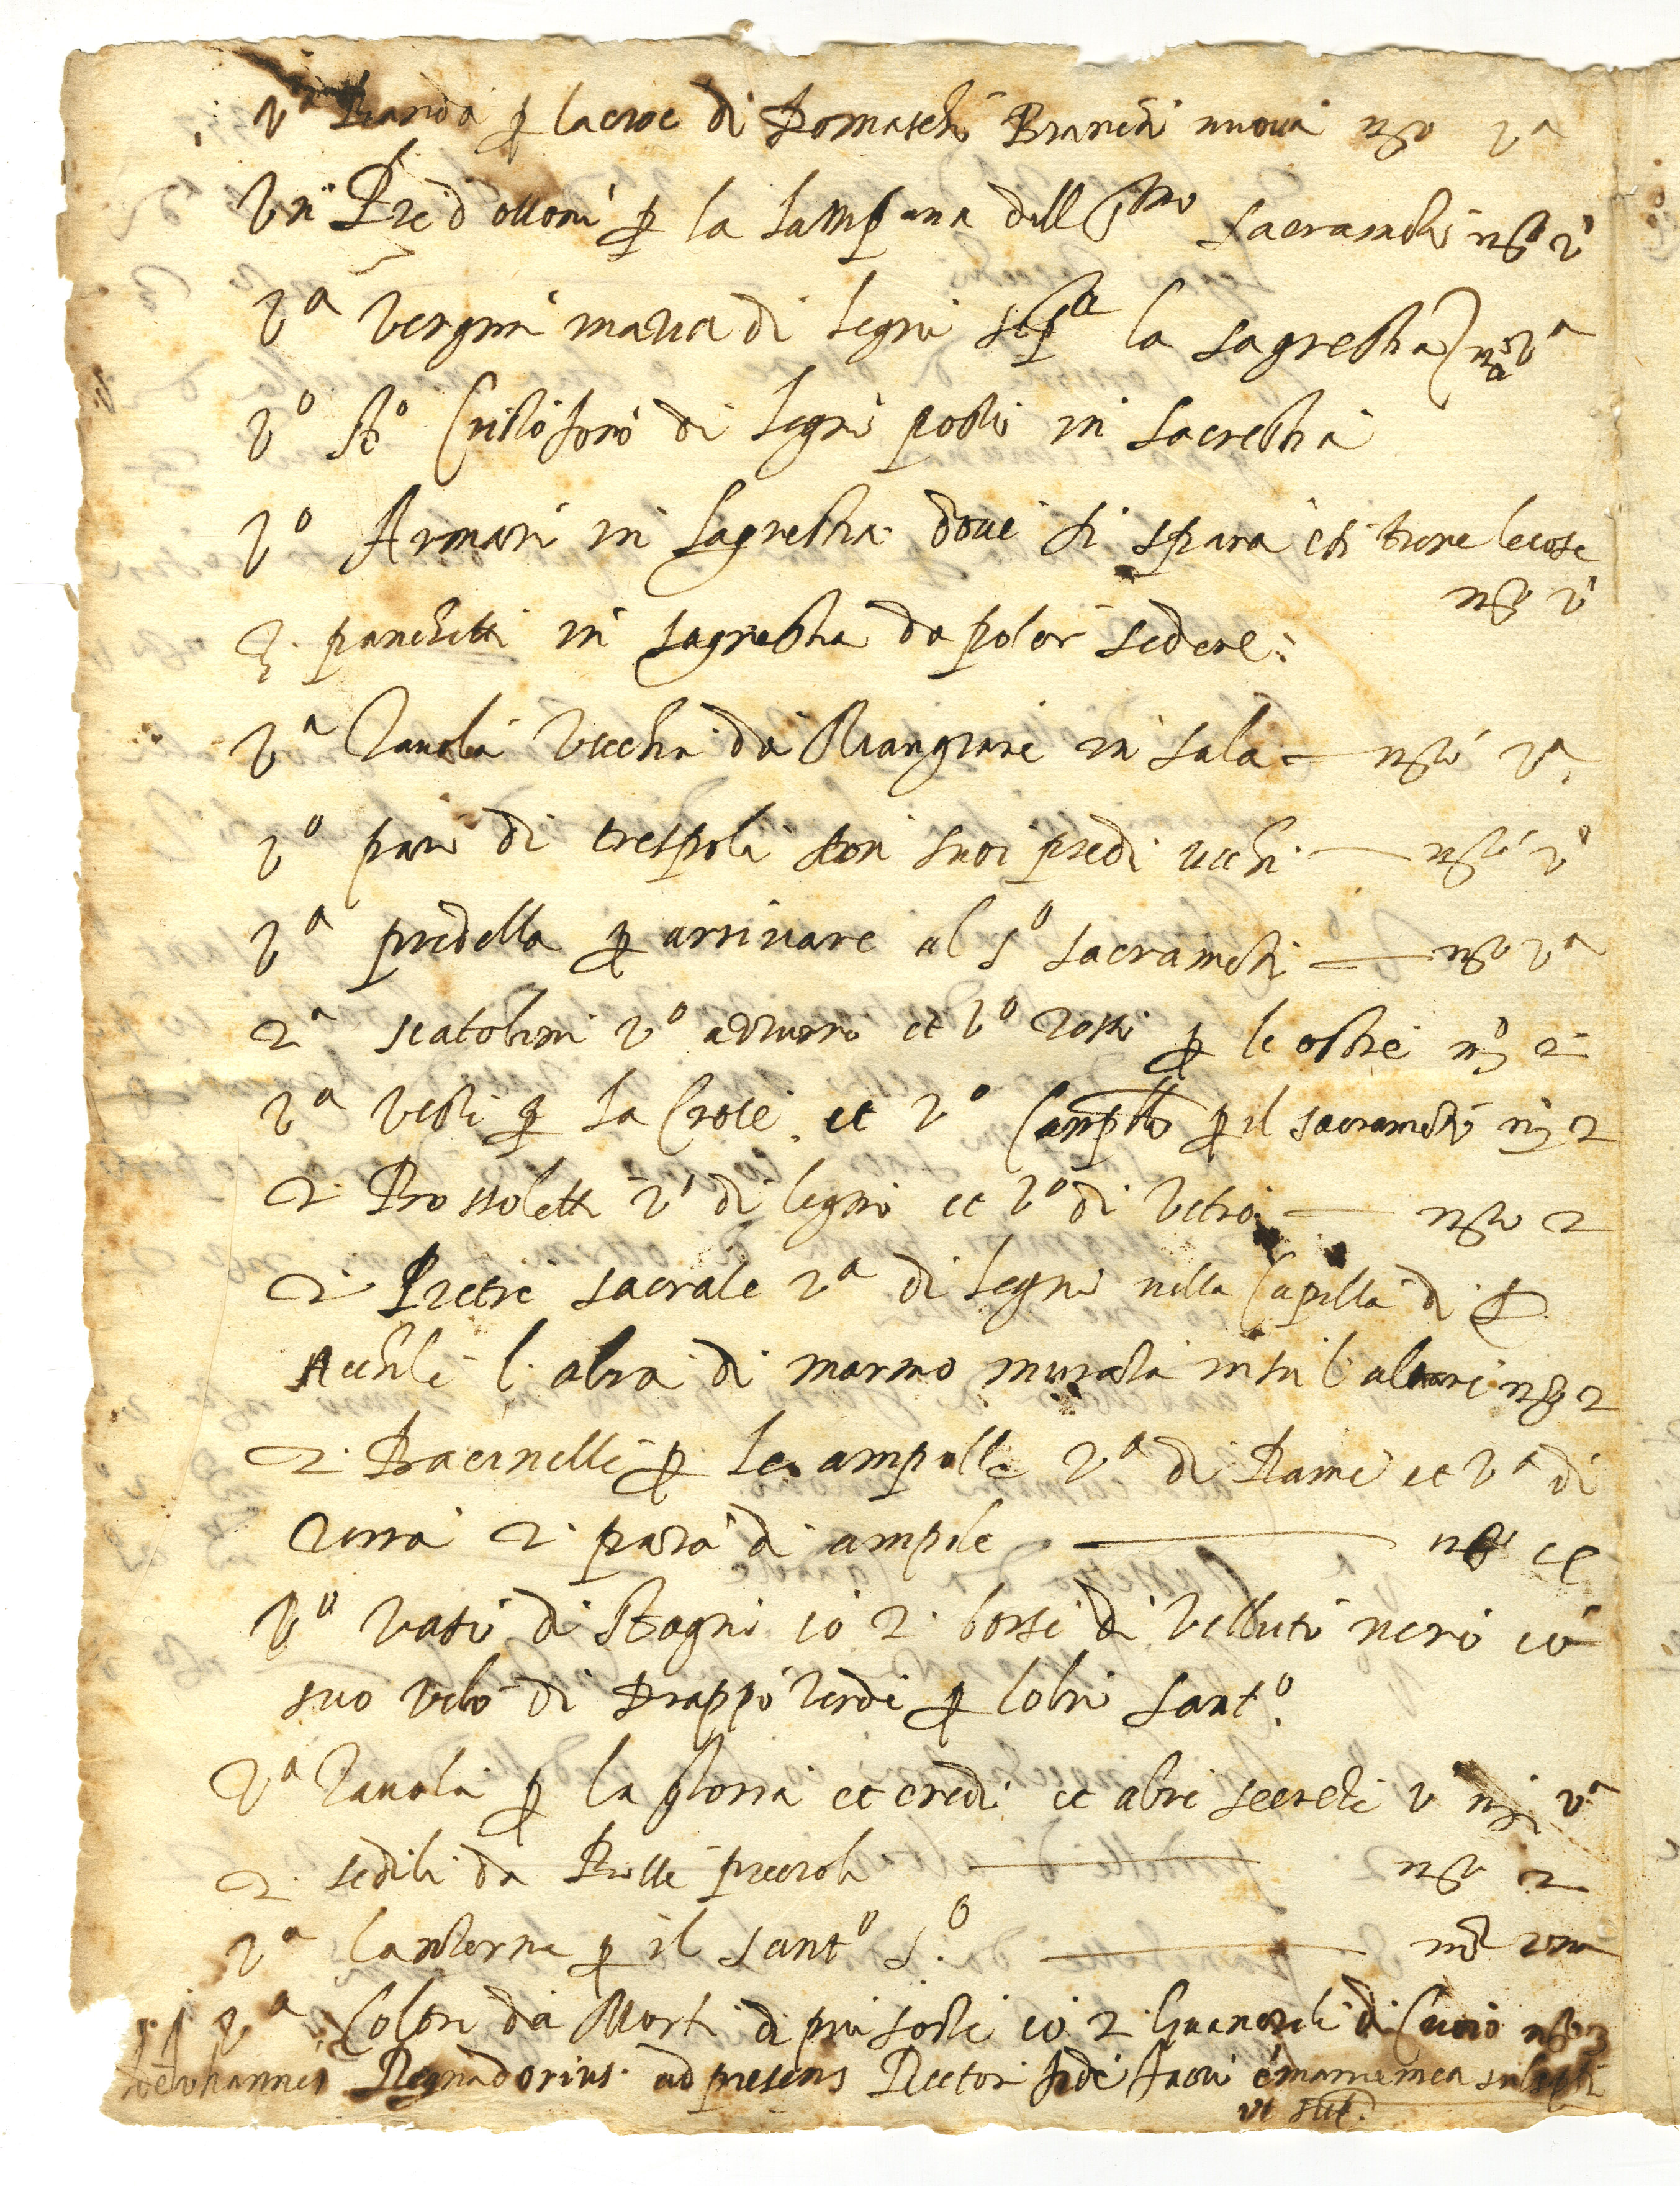 Vª Banda p lacroce di Domascho Biancho nuova nº Vª
Vn Pie d ottone p la Lampana dell Smo Sacramento nº Vº
Vª Vergine maria di legno sopª la sagrestia nº Vª
Vº Stº Cristofono di legno posto in Sacrestia
Vº Armario in sagrestia dove si spara et si tiene le cose
nº Vº
3. panchetti in sagrestia da poter sedere:
Vª Tauola Vechia da Mangiare in sala — nº Vª
Vº paro di trespoli con suoi piedi uechi — nº Vº
Vª predella p arrivare al Sº Sacramento — nº Vª
2 scatolini Vº azzurro et Vº rosso p le ostie nº 2
Vª Veste p la Croce et Vº p il sacramento nº 2
2 Bossoletti Vº di legno et Vº di Vetro — nº 2
2 Pietre sacrate Vª di legno nella Capella di
l altra di marmo murata in su l altare nº 2
2. Bacinelle p le ampolle Vª di Rame et Vª di
terra 2. para di ampole — nº
Vº Vaso di Stagno cō 2 borse di Velluto nero cō
suo Velo di Drappo Verde p lolio santº.
Vª Tauola p la gloria et credo et altre secrete nº Vª
2. sedili da piccoli — nº 2
Vª Lanterna p il santº Sº —
Vª Coltre da Morti di piu sorte cō 2 Guanciali di Cuoio
ad presens Rector manu mea
ut supª.